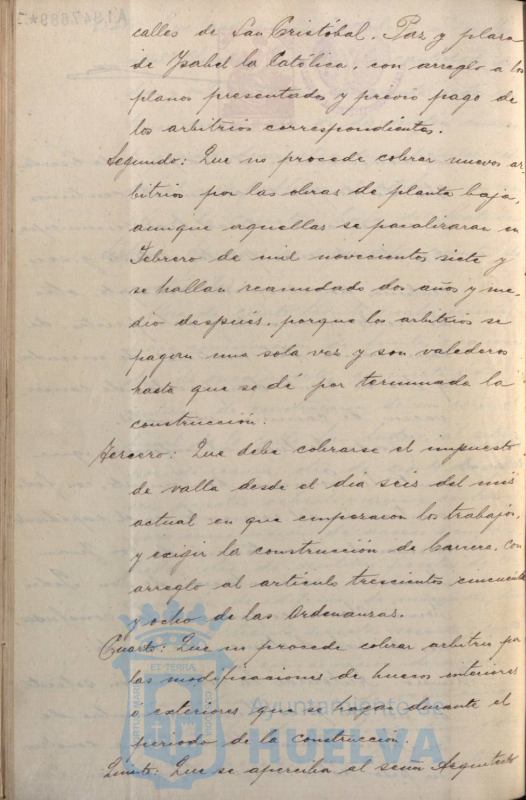 calles de San Cristóbal, Paz y plaza
de Ysabel la Católica, con arreglo a los
planos presentados y previo pago de
los arbitrios correspondientes.
Segundo: Que no procede cobrar nuevos ar-
bitrios por las obras de planta baja,
aunque aquellas se paralizaran en
Febrero de mil novecientos siete y
se hallan reanudado dos años y me-
dio después, porque los arbitrios se
pagan una sola vez y son valederos
hasta que se dé por terminada la
construcción.
Tercero: Que debe cobrarse el impuesto
de valla desde el dia seis del mes
actual en que empezaron los trabajos,
y exigir la construcción de barrera, con
arreglo al artículo trescientos cincuenta
y ocho de las Ordenanzas.
Cuarto: Que no procede cobrar arbitrio por
las modificaciones de huecos interiores
o exteriores que se hagan durante el
periodo de la construcción.
Quinto: Que se aperciba al señor Arquitecto
ET TERRA
Ayuntamiento de
HUELVA